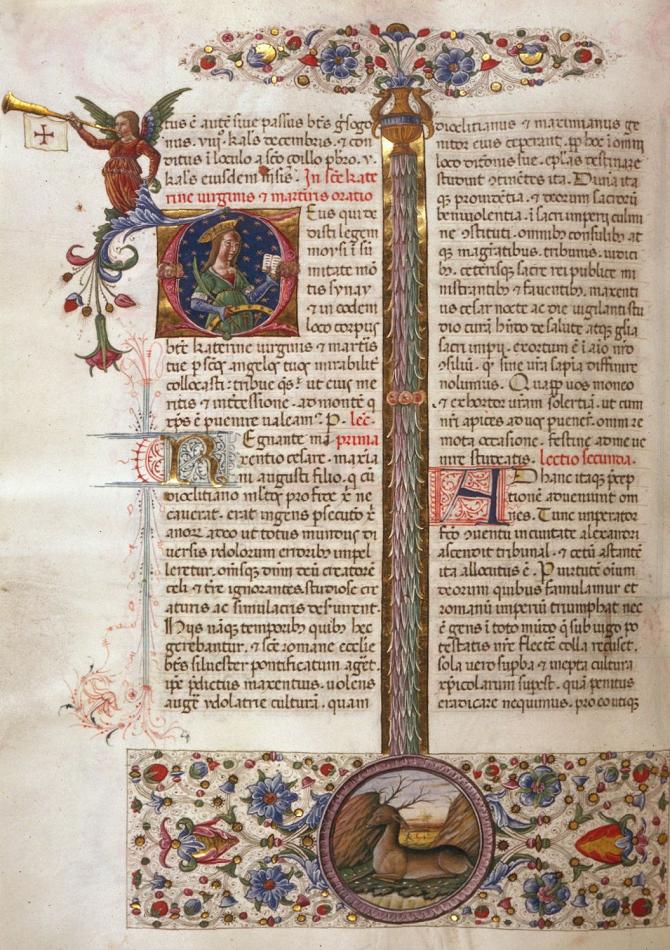 tus ē autē siue passus btīs gͥsogo
nus. viij. kal's decembris. ⁊ con
ditus i loculo a scō coillo pb̄ro. v.
kal's eiusdem īsis. In scē kate
rine uirginis ⁊ martiris oratio
Eus qui de
disti legem
moysi ī sū
mitate mō
tis synay
⁊ in eodem
loco corpus
btē katerine uirginis ⁊ martis
tue p scōs angelos tuos mirabilit̄
collocasti: tribue qs̄. ut eius me
ritis ⁊ intcessione. ad montē q
xp̄s ē puenire valeam⁹. P. lec̄.
REgnante ma prima
xentio cesare. maxīa
ni augusti filio. q cū
dioclitiano
cauerat. erat ingens psecutō
ut totus mundus di
uersis ydolorum erroribus impel
leretur. omīsq dūm deū creatorē
celi ⁊ tr̄e ignorantes. studiose cre
aturis ac simulacris des'uirent.
Hijs nāq temporib quib hec
gerebantur. ⁊ scē romane ecclie
btūs siluester pontificatum aget.
ip̄e p̄dictus maxentius. uolens
augē ydolatrie culturā. quam
dioclitianus ⁊ maximianus ge
nitor eius ceperant. pp hoc ī omni
loco ditonis sue. eplās destinare
studuit otinētes ita. Diuia ita
q prouidētia. ⁊ deorum sacrorū
beniuolentia. ī sacri imperij culmi
ne ostituti. omnib consulib at
q magratibus. tribunis. iudici
b. ceterisq sacre rei publice mi
nistrantib ⁊ fauentib. maxenti
us cesar nocte ac die uigilanti stu
dio curā hn̄do de salute atq glīa
sacri impij. exortum ē ī aīo nrō
osiliū. q sine uīa sapīa diffinire
nolumus. Quapp uos moneo
⁊ exhortor uram solertiā. ut cum
nrī apices ad uos puenēt. omni re
mota occasione. festine ad me ue
nire studeatis. lectio secunda.
AD hanc itaq p̄cep
tionē adueniunt om
nes. Tunc imperator
fcō ouentu in ciuitate alexandri
ascendit tribunal. ⁊ cetū astantē
ita allocutus ē. P uirtutē oium
deorum quibus famulamur et
romanū imperiū triumphat nec
ē gens ī toto mūdo q sub iugo po
testatis nrē flectē colla recuset.
sola uero supba ⁊ inepta cultura
xp̄icolarum supest. quā penitus
eradicare nequimus. pro eo utiq